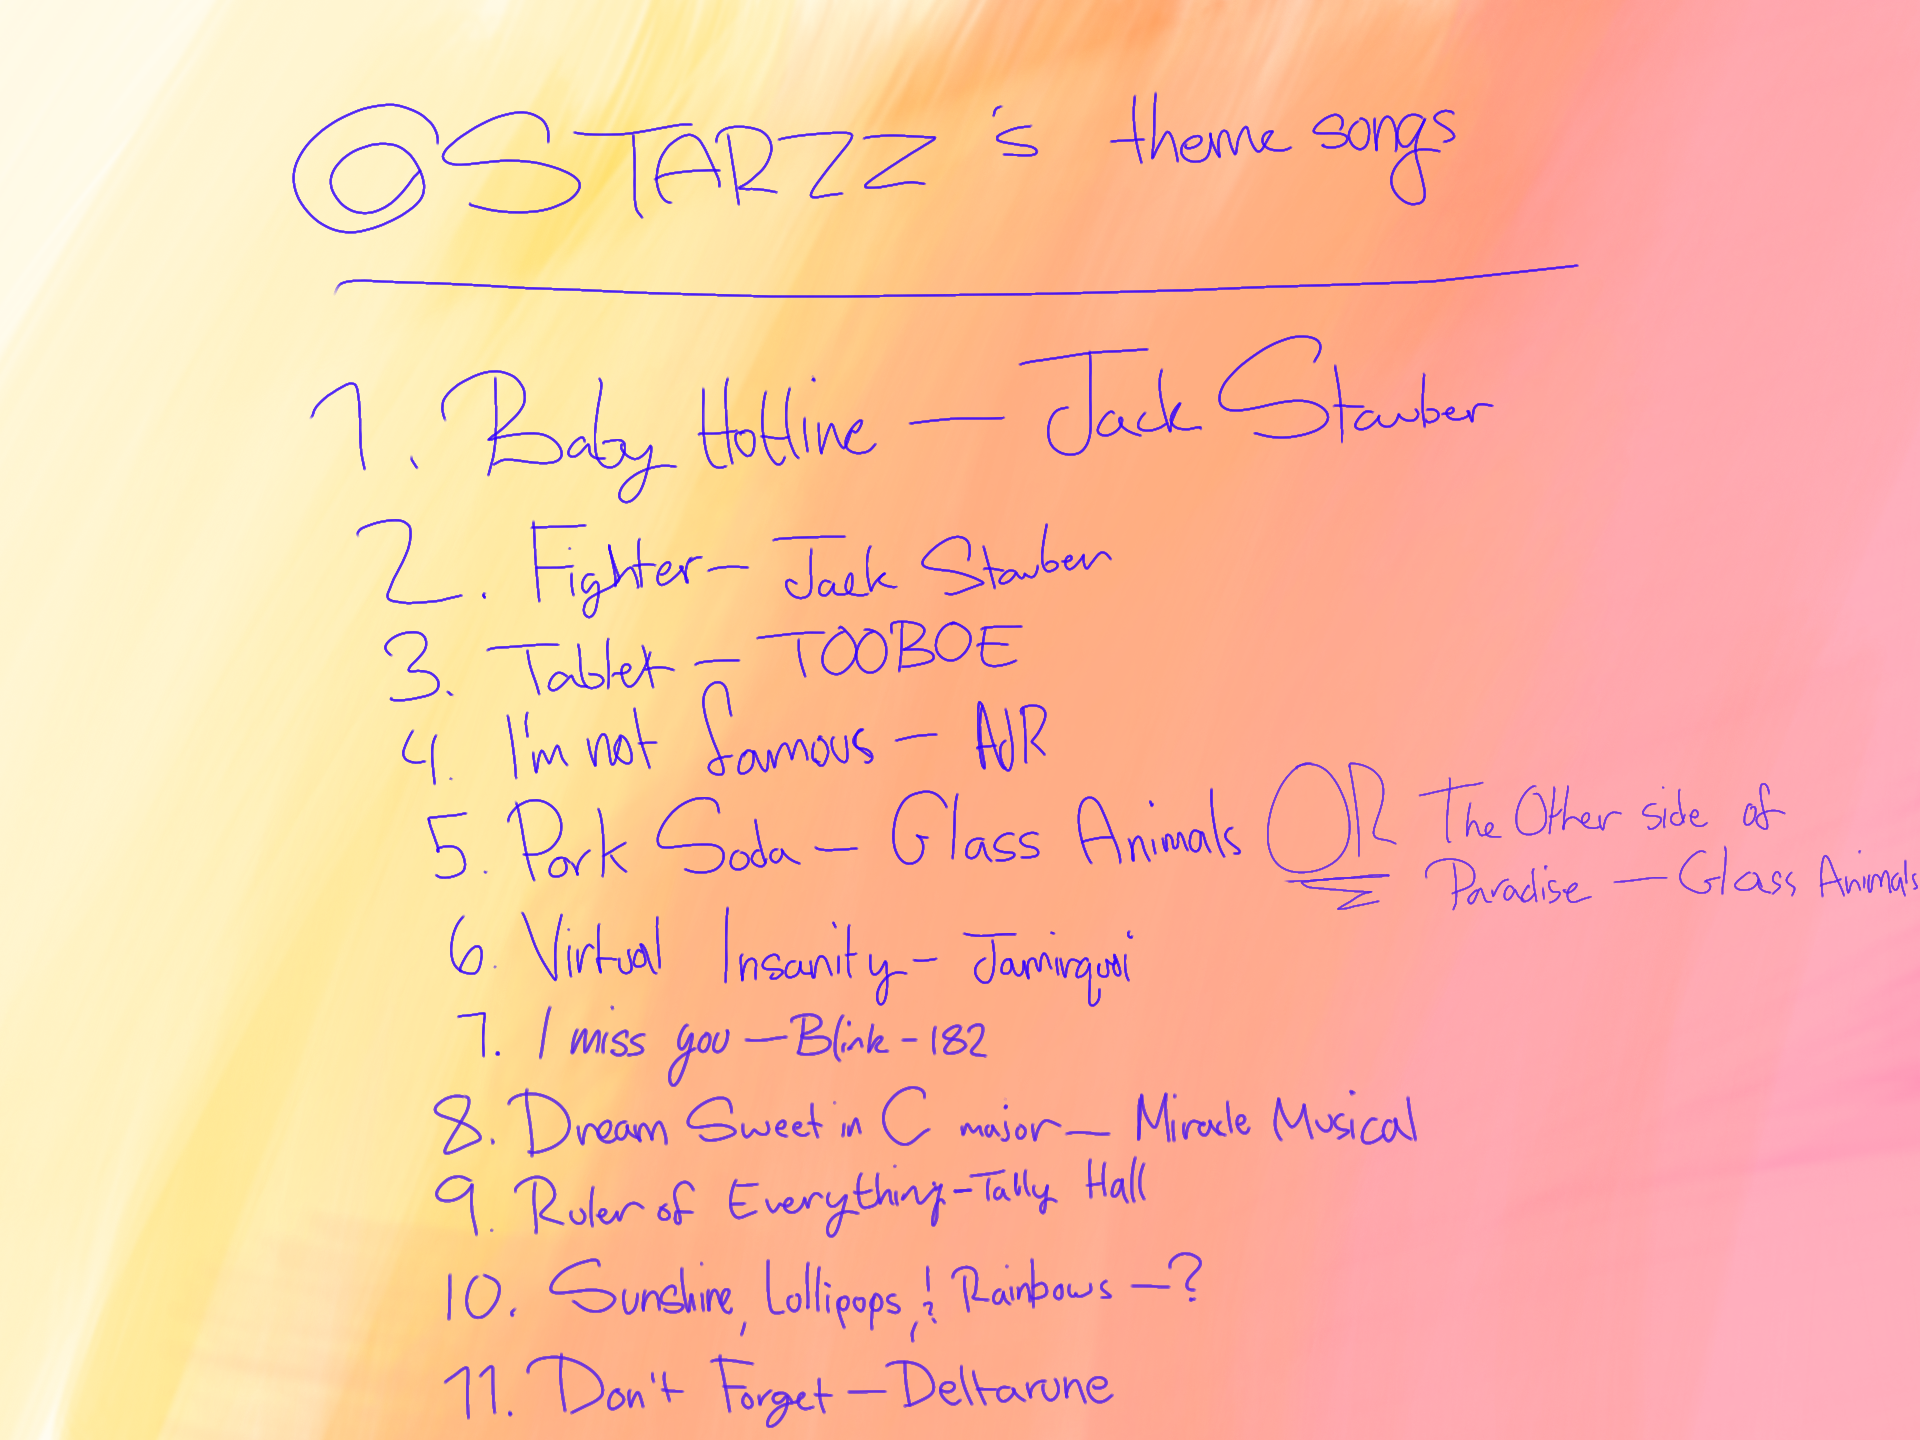 @STARZZ's theme songs
1. Baby Hotline — Jack Stauber
2. Fighter — Jack Stauber
3. Tablet — TOOBOE
4. I'm not famous — AJR
5. Pork Soda — Glass Animals OR The Other side of
Paradise — Glass Animals
6. Virtual Insanity — Jamirquoi
7. I miss you — Blink-182
8. Dream Sweet in C major — Miracle Musical
9. Ruler of Everything - Tally Hall
10. Sunshine, Lollipops, & Rainbows — ?
11. Don't Forget — Deltarune